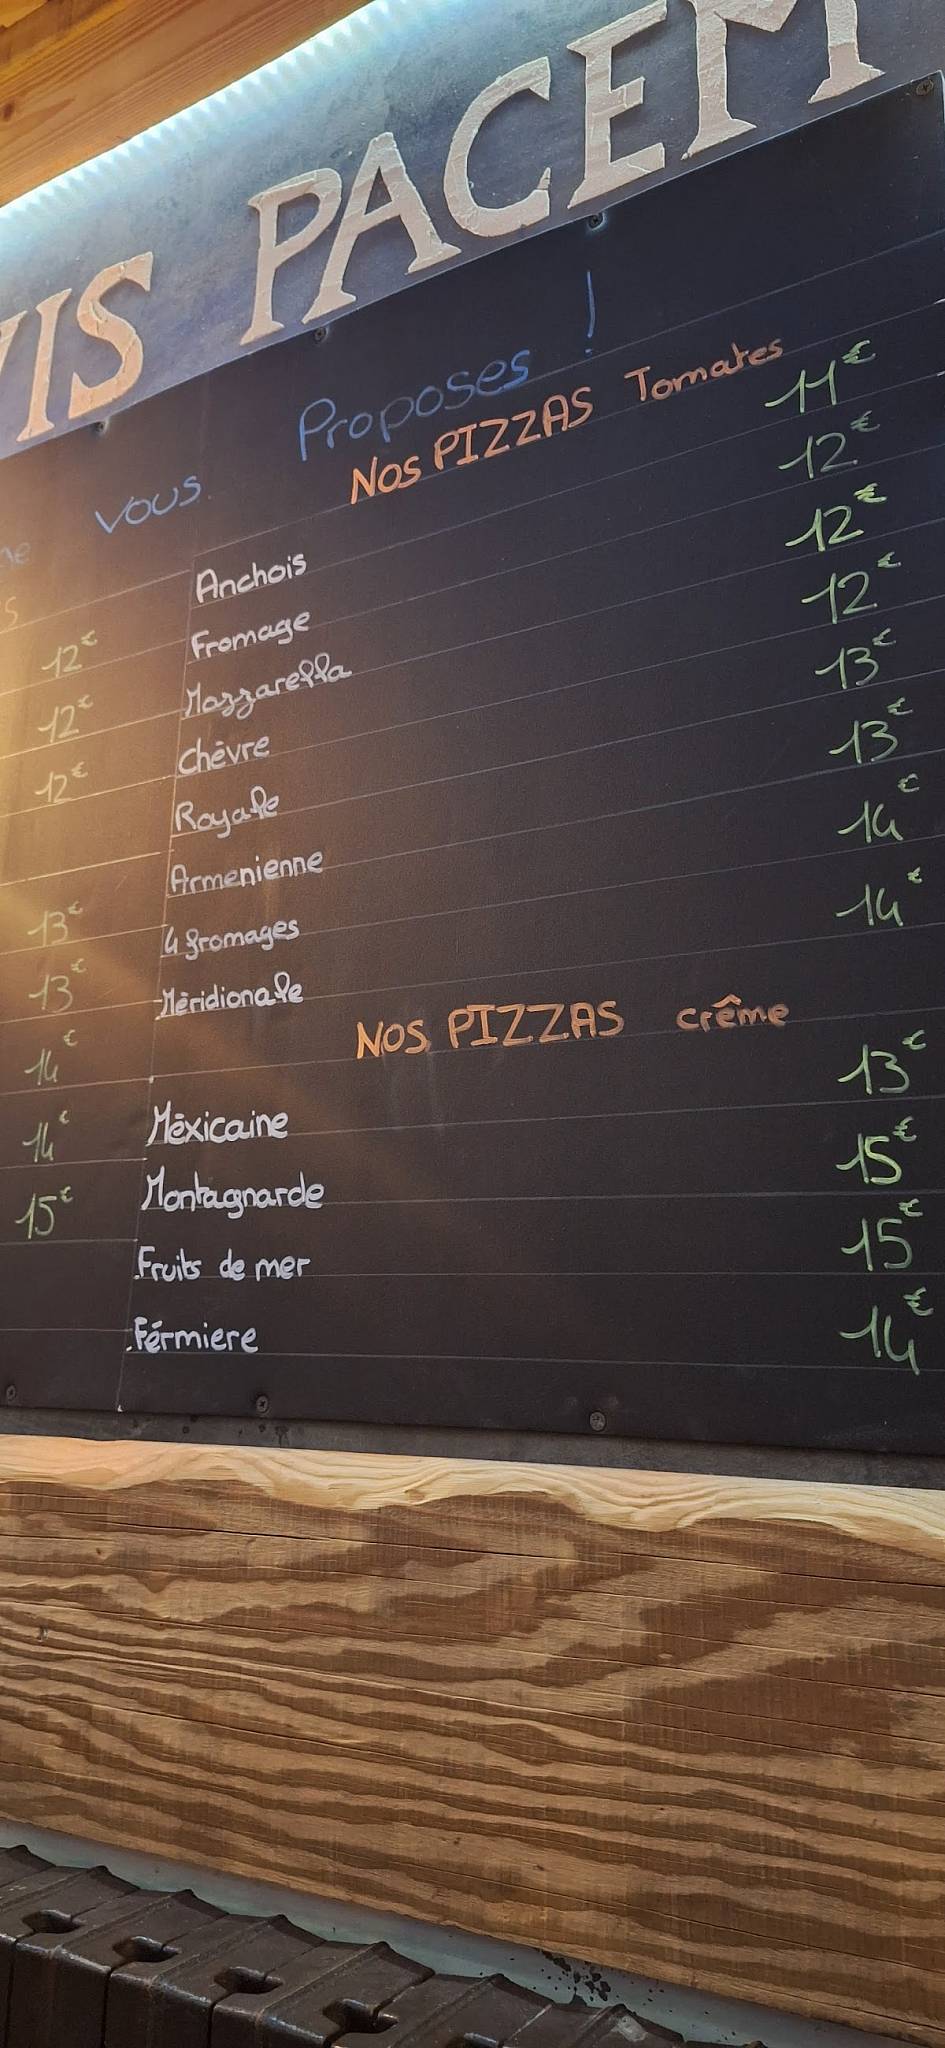 VIS PACEM
vous Proposes !
12€
12€
12€
13€
13€
14€
14€
15€
NOS PIZZAS Tomates
Anchois 11€
Fromage 12€
Mozzarella 12€
Chèvre 12€
Royale 13€
Armenienne 13€
4 fromages 14€
Méridionale 14€
NOS PIZZAS crême
Méxicaine 13€
Montagnarde 15€
Fruits de mer 15€
Férmiere 14€